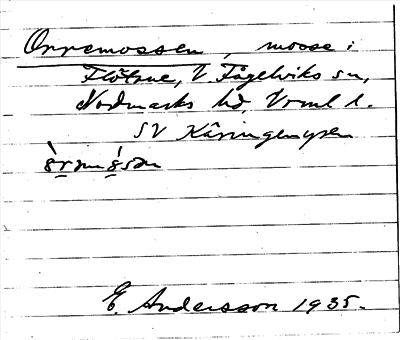 Orremossen, mosse i
Flötane, V. Fågelviks sn,
Nordmarks hd, Vrml l.
SV Käringmyren
E. Andersson 1935.